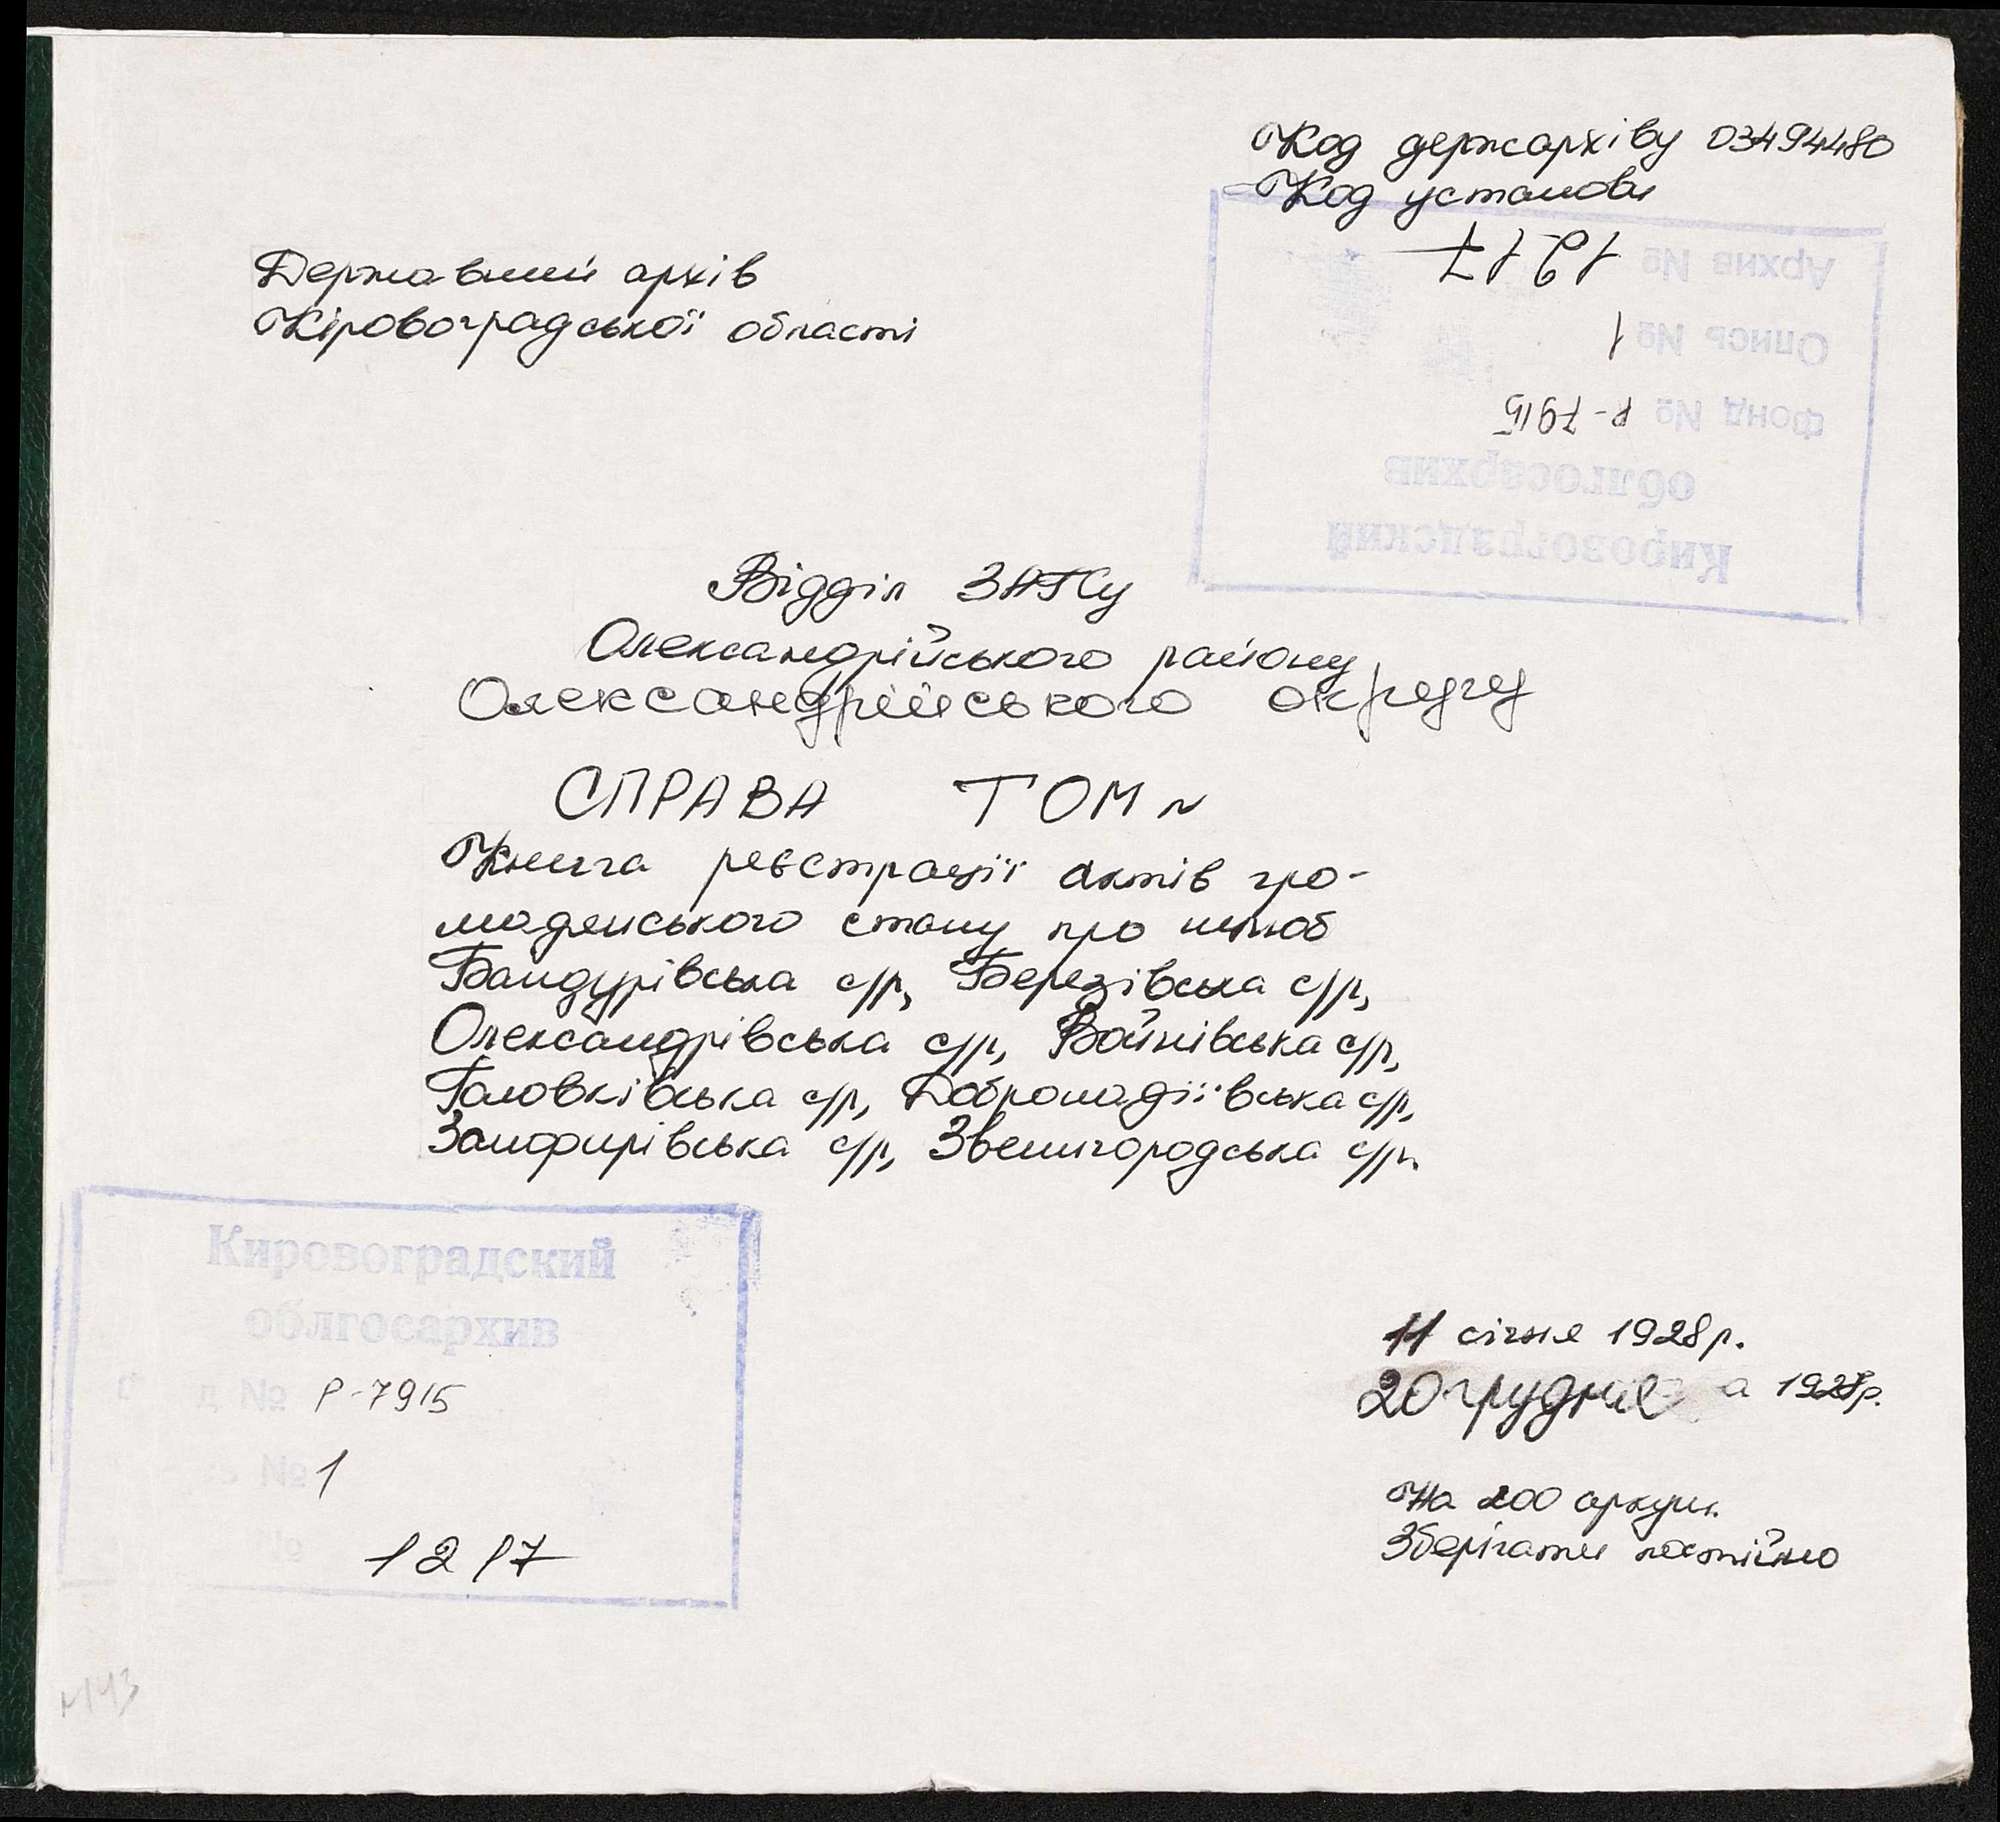 Код держархіву 03494480
Код установи
Архив № 1217
Опись № 1
Фонд № Р-7915
облгосархив
Кировоградский
Державний архів
Кіровоградської області
Відділ ЗАГСу
Олександрійського району
Олександрійського округу
СПРАВА ТОМ N
Книга реєстрації актів гро-
мадянського стану про шлюб
Бандурівська с/р, Березівська с/р,
Олександрівська с/р, Войнівська с/р,
Головківська с/р, Добронадіївська с/р,
Занфирівська с/р, Звенигородська с/р.
Кировоградский
облгосархив
д № Р-7915
№ 1
№ 1217
11 січня 1928 р.
20 грудня а 1928р.
На 200 аркуш.
Зберігати постійно